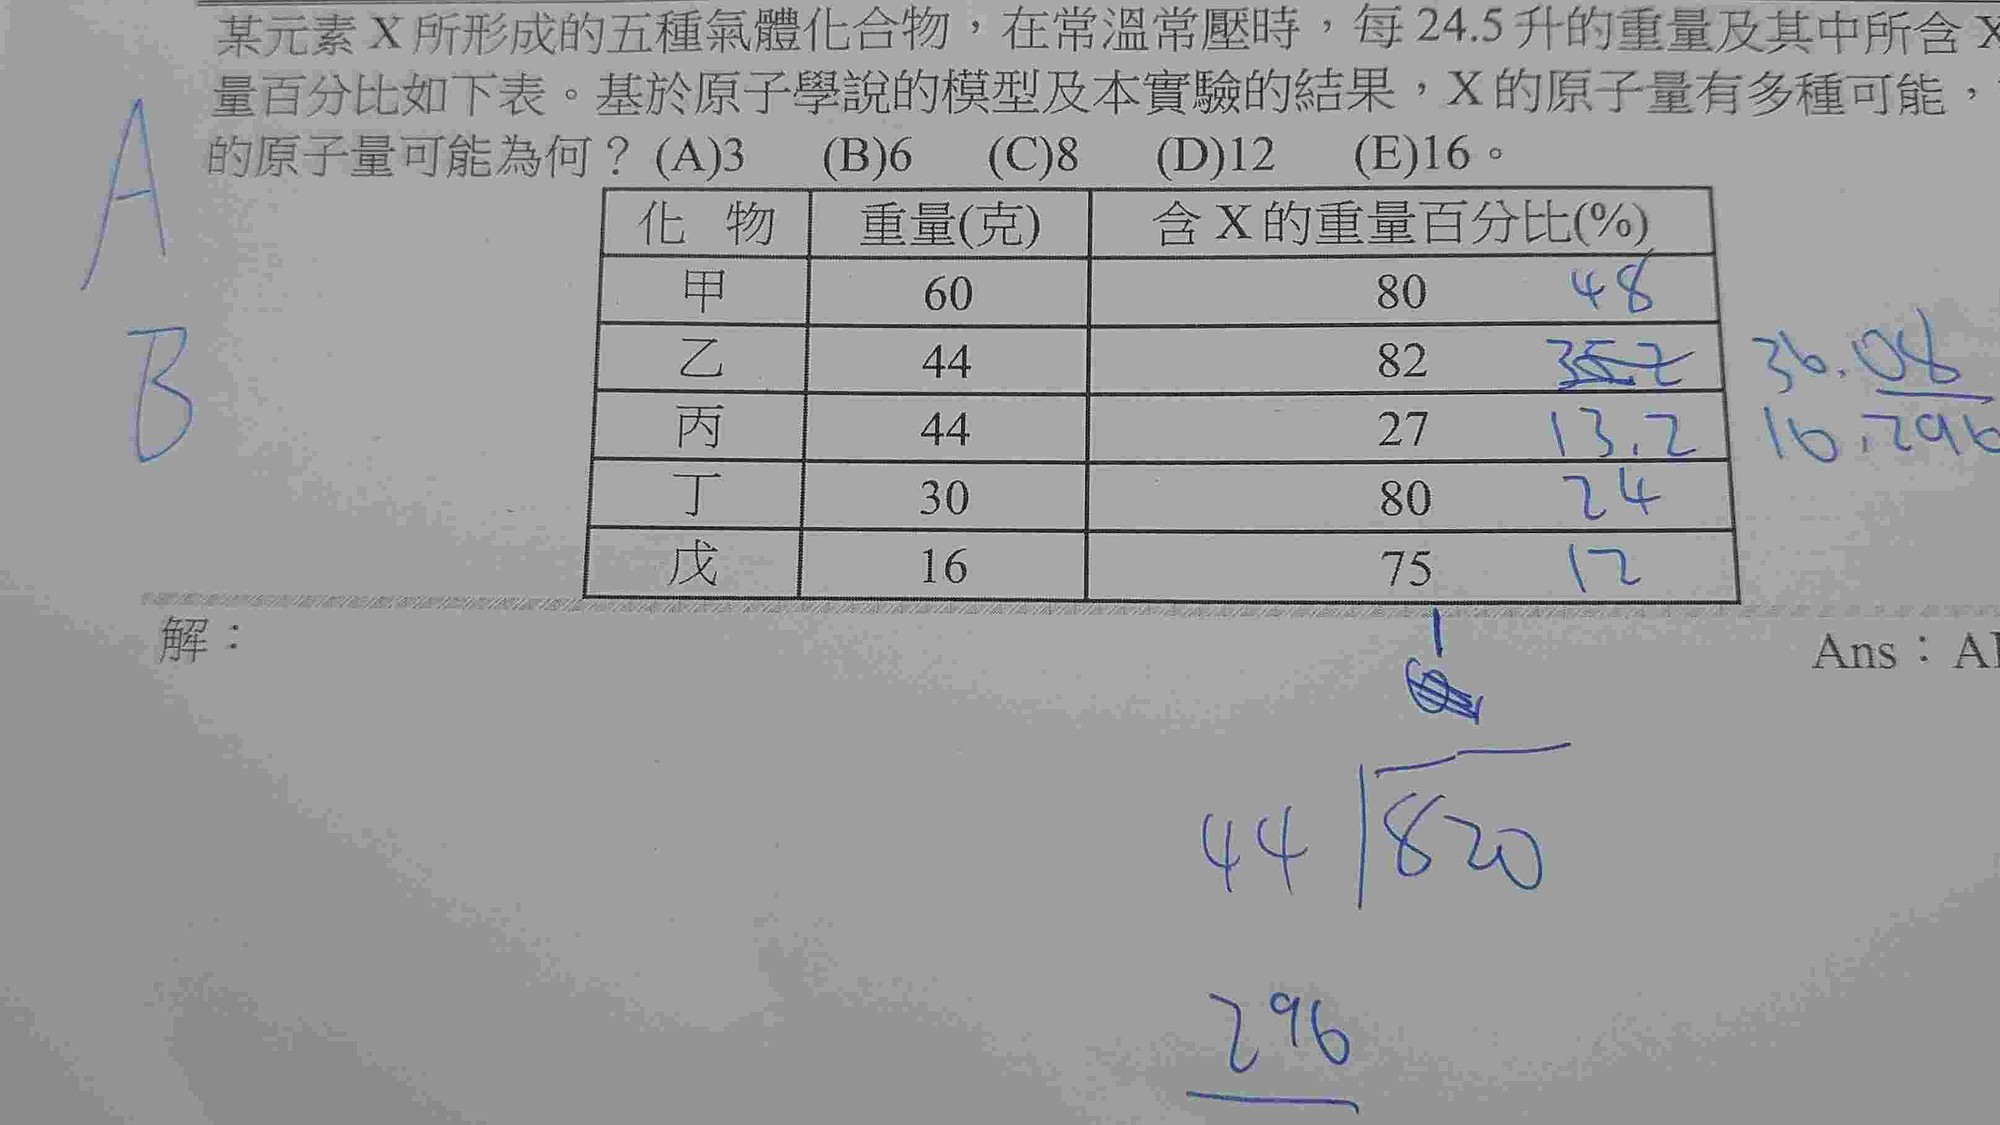 某元素 X 所形成的五種氣體化合物，在常溫常壓時，每 24.5 升的重量及其中所含 X
量百分比如下表。基於原子學說的模型及本實驗的結果，X 的原子量有多種可能，
的原子量可能為何？ (A)3 (B)6 (C)8 (D)12 (E)16。
A
B
化 物 重量(克) 含 X 的重量百分比(%)
甲 60 80 48
乙 44 82 36.08
丙 44 27 13.2 16.296
丁 30 80 24
戊 16 75 12
解：
Ans：A
1
44 820
296